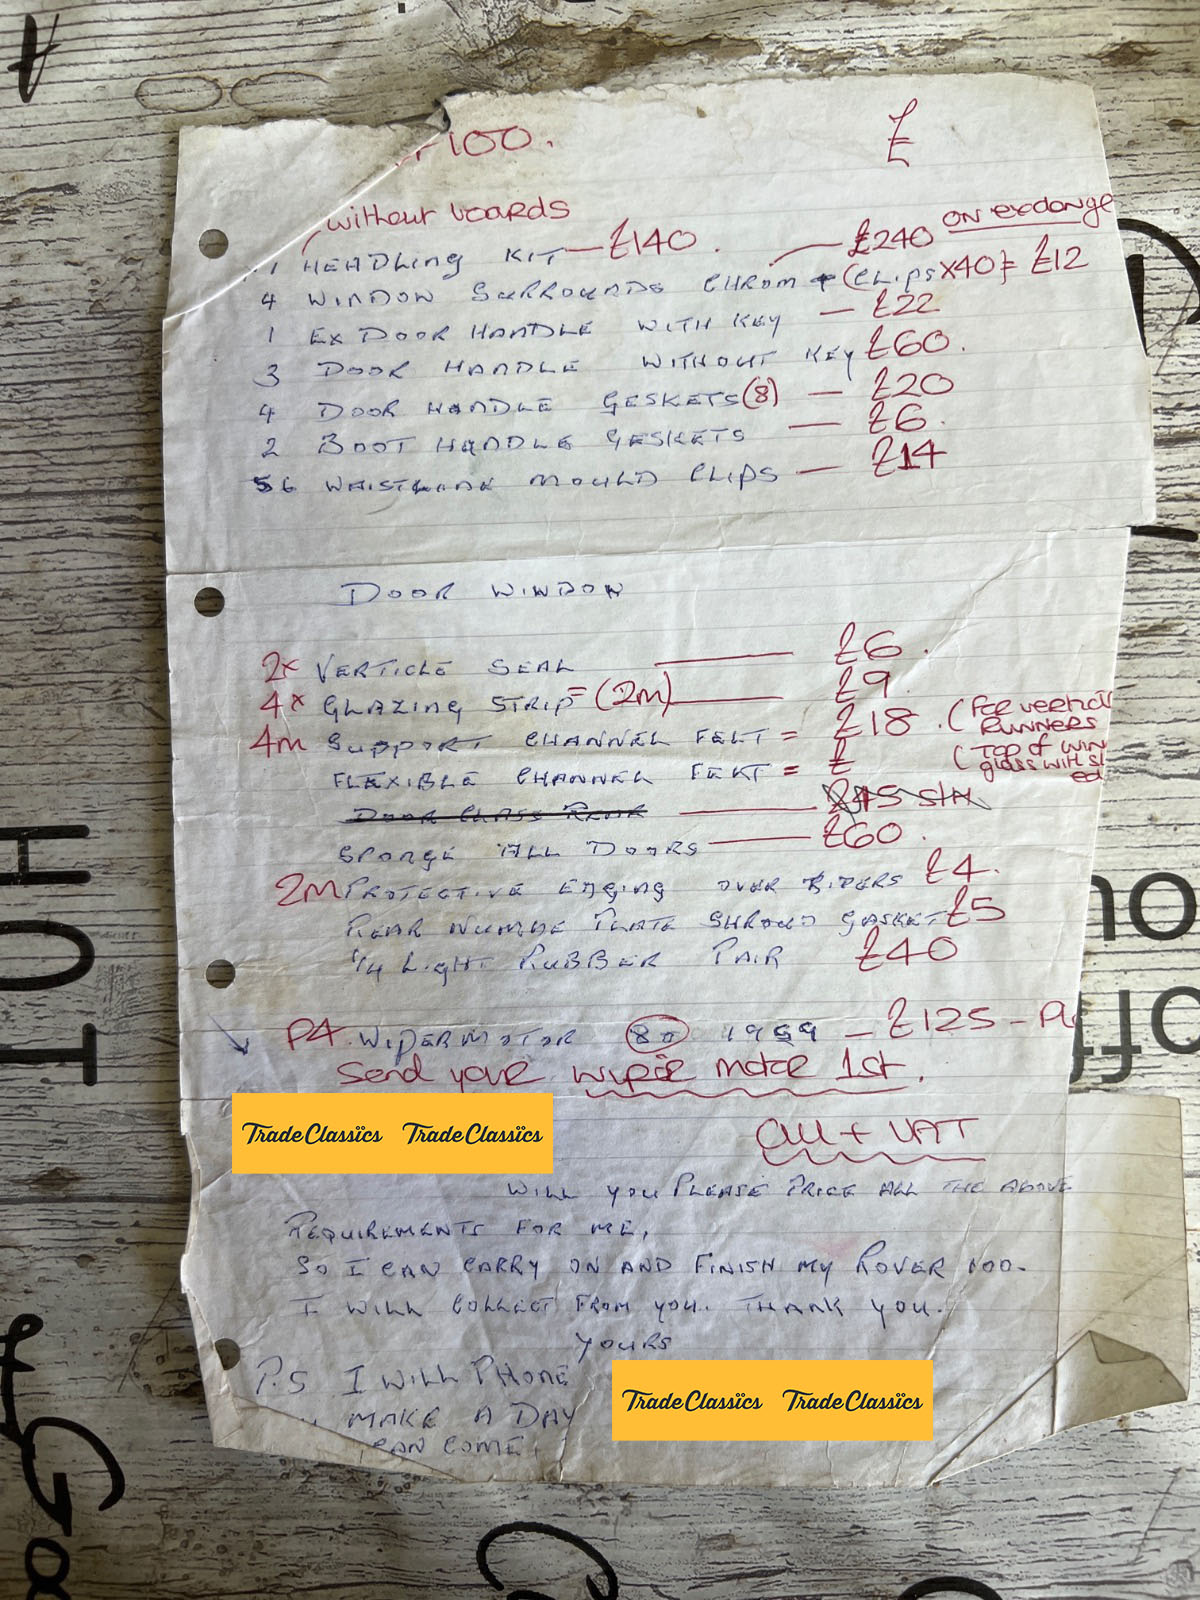 100.
£
without boards
1 HEADLING KIT — £140.
— £240 on exchange
4 WINDOW SURROUNDS CHROM + (CLIPS X40) = £12
1 EX DOOR HANDLE WITH KEY — £22
3 DOOR HANDLE WITHOUT KEY £60.
4 DOOR HANDLE GESKETS (8) — £20
2 BOOT HANDLE GESKETS — £6.
56 WAISTLINE MOULD CLIPS — £14
DOOR WINDOW
2x VERTICLE SEAL — £6.
4x GLAZING STRIP = (2m) — £9.
4m SUPPORT CHANNEL FELT = £18. (For vertical RUNNERS
FLEXIBLE CHANNEL FEKT = £ (Top of win
glass with sl
ed
DOOR GLASS REAR — £45 S/H
SPONGE ALL DOORS — £60.
2M PROTECTIVE EDGING OVER RIDERS £4.
REAR NUMBE PLATE SHROUD GASKET £5
1/4 LIGHT RUBBER PAIR £40
P4. WIPERMOTOR 80 1959 — £125 - PL
Send your wiper motor 1st.
TradeClassics TradeClassics
All + VAT
WILL YOU PLEASE PRICE ALL THE ABOVE
REQUIREMENTS FOR ME,
SO I CAN CARRY ON AND FINISH MY ROVER 100.
I WILL COLLECT FROM YOU. THANK YOU.
YOURS
P.S I WILL PHONE
MAKE A DAY
CAN COME.
TradeClassics TradeClassics